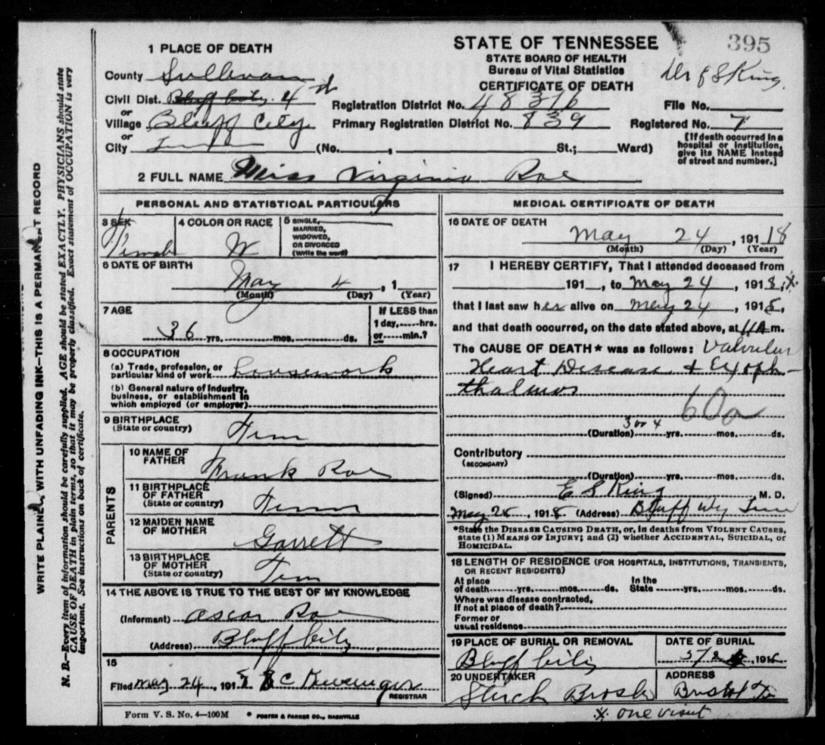 STATE OF TENNESSEE
395
STATE BOARD OF HEALTH
Bureau of Vital Statistics
CERTIFICATE OF DEATH
Dr E S King.
1 PLACE OF DEATH
County Sullivan
Civil Dist. Bluff City 4th
or
Village Bluff City
or
City Tenn
Registration District No. 48316
File No.
Primary Registration District No. 839
Registered No. 7
(No. , St.; Ward)
[If death occurred in a hospital or institution, give its NAME instead of street and number.]
2 FULL NAME Miss Virginia Roe
PERSONAL AND STATISTICAL PARTICULARS
3 SEX
Female
4 COLOR OR RACE
W
5 SINGLE,
MARRIED,
WIDOWED,
OR DIVORCED
(Write the word)
6 DATE OF BIRTH
May 4 , 1
(Month) (Day) (Year)
7 AGE
36 yrs. mos. ds.
If LESS than
1 day, hrs.
or min.?
8 OCCUPATION
(a) Trade, profession, or
particular kind of work Housework
(b) General nature of industry,
business, or establishment in
which employed (or employer)
9 BIRTHPLACE
(State or country) Tenn
PARENTS
10 NAME OF
FATHER Frank Roe
11 BIRTHPLACE
OF FATHER
(State or country) Tenn
12 MAIDEN NAME
OF MOTHER Garrett
13 BIRTHPLACE
OF MOTHER
(State or country) Tenn
14 THE ABOVE IS TRUE TO THE BEST OF MY KNOWLEDGE
(Informant) Oscar Roe
(Address) Bluff City
15
Filed May 24, 1918
REGISTRAR
MEDICAL CERTIFICATE OF DEATH
16 DATE OF DEATH
May 24 , 1918
(Month) (Day) (Year)
17 I HEREBY CERTIFY, That I attended deceased from
191 , to May 24 , 1918, *
that I last saw her alive on May 24 , 1918,
and that death occurred, on the date stated above, at 4A m.
The CAUSE OF DEATH * was as follows: Valvular
Heart Disease & Exoph-
thalmos
60a
(Duration) 3 or 4 yrs. mos. ds.
Contributory
(SECONDARY)
(Duration) yrs. mos. ds.
(Signed) E S King M. D.
May 25, 1918 (Address) Bluff City Tenn
*State the DISEASE CAUSING DEATH, or, in deaths from VIOLENT CAUSES,
state (1) MEANS OF INJURY; and (2) whether ACCIDENTAL, SUICIDAL, or
HOMICIDAL.
18 LENGTH OF RESIDENCE (FOR HOSPITALS, INSTITUTIONS, TRANSIENTS,
OR RECENT RESIDENTS)
At place
of death yrs. mos. ds.
In the
State yrs. mos. ds.
Where was disease contracted,
If not at place of death?
Former or
usual residence
19 PLACE OF BURIAL OR REMOVAL
Bluff City
DATE OF BURIAL
20 UNDERTAKER
ADDRESS
Bristol Tn
* one visit
Form V. S. No. 4—100M
* FOSTER & PARKES CO., NASHVILLE
WRITE PLAINLY, WITH UNFADING INK—THIS IS A PERMANENT RECORD
N. B.—Every item of information should be carefully supplied. AGE should be stated EXACTLY. PHYSICIANS should state
CAUSE OF DEATH in plain terms, so that it may be properly classified. Exact statement of OCCUPATION is very
important. See instructions on back of certificate.